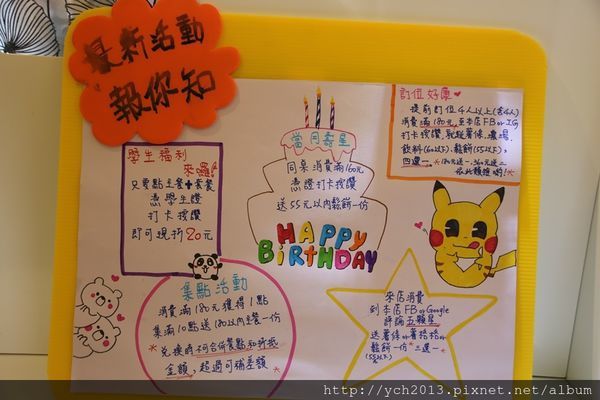 最新活動
報你知
學生福利
來囉!
只要點主餐+套餐
憑學生證
打卡按讚
即可現折20元
當月壽星
同桌消費滿160元
憑證打卡按讚
送55元以內鬆餅一份
HAPPY
BiRTHDAY
訂位好康
提前訂位4人以上(含4人)
消費滿180元至本店FB or IG
打卡按讚,就送薯條、濃湯、
飲料(60以下)、鬆餅(55以下),
四選一 *180元送一、360元送二
依此類推喲!
集點活動
消費滿180元獲得1點
集滿10點送180以內主餐一份
*兌換時不可合併餐點和折抵
金額,超過可補差額*
來店消費
到本店FB or Google
評論五顆星
送薯條or薯格格or
鬆餅一份*三選一*
(55元以下)
http://ych2013.pixnet.net/album